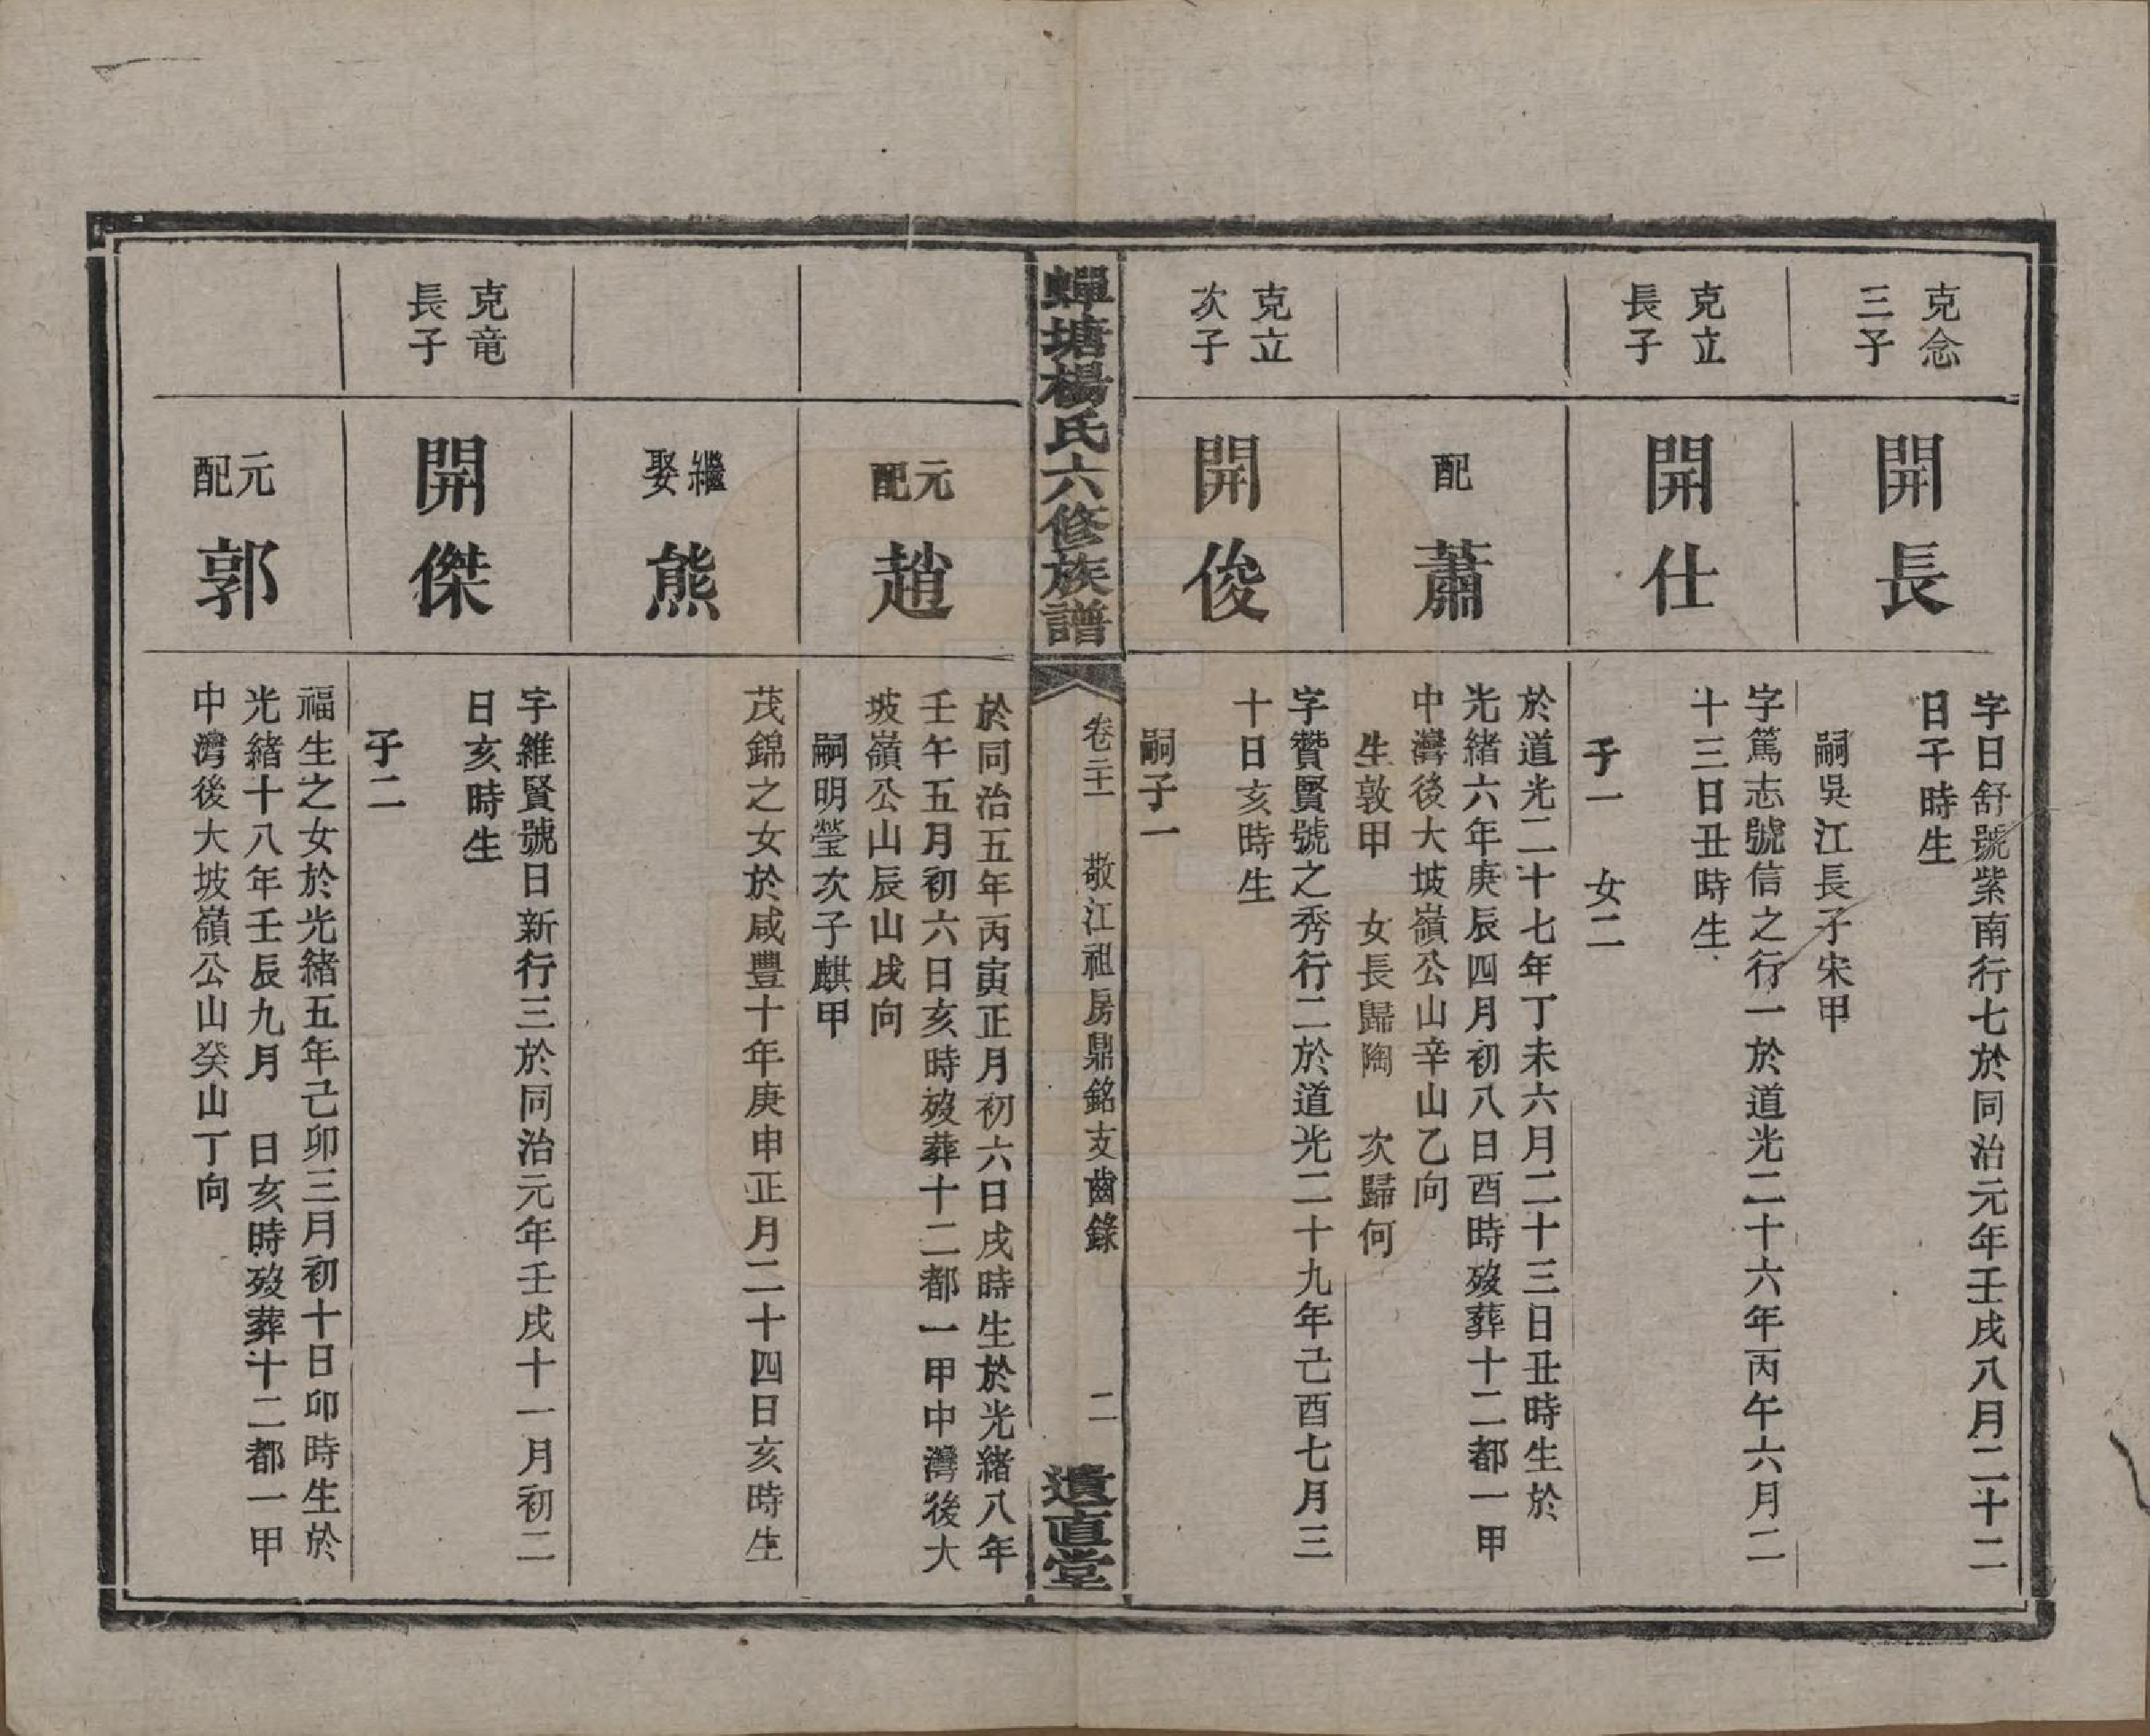 克念
三子
開長
字日舒號紫南行七於同治元年壬戌八月二十二
日午時生
嗣吳江長子宋甲
克立
長子
開仕
字篤志號信之行一於道光二十六年丙午六月二
十三日丑時生
子一　女二
配
蕭
於道光二十七年丁未六月二十三日丑時生於
光緒六年庚辰四月初八日酉時歿葬十二都一甲
中灣後大坡嶺公山辛山乙向
生敦甲　女長歸陶　次歸何
克立
次子
開俊
字贊賢號之秀行二於道光二十九年己酉七月三
十日亥時生
嗣子一
蟬塘楊氏六修族譜
卷二十一　敬江祖房鼎銘支齒錄　二
遺直堂
元配
趙
於同治五年丙寅正月初六日戌時生於光緒八年
壬午五月初六日亥時歿葬十二都一甲中灣後大
坡嶺公山辰山戌向
嗣明瑩次子麒甲
繼娶
熊
茂錦之女於咸豐十年庚申正月二十四日亥時生
克竜
長子
開傑
字維賢號日新行三於同治元年壬戌十一月初二
日亥時生
子二
元配
郭
福生之女於光緒五年己卯三月初十日卯時生於
光緒十八年壬辰九月　日亥時歿葬十二都一甲
中灣後大坡嶺公山癸山丁向